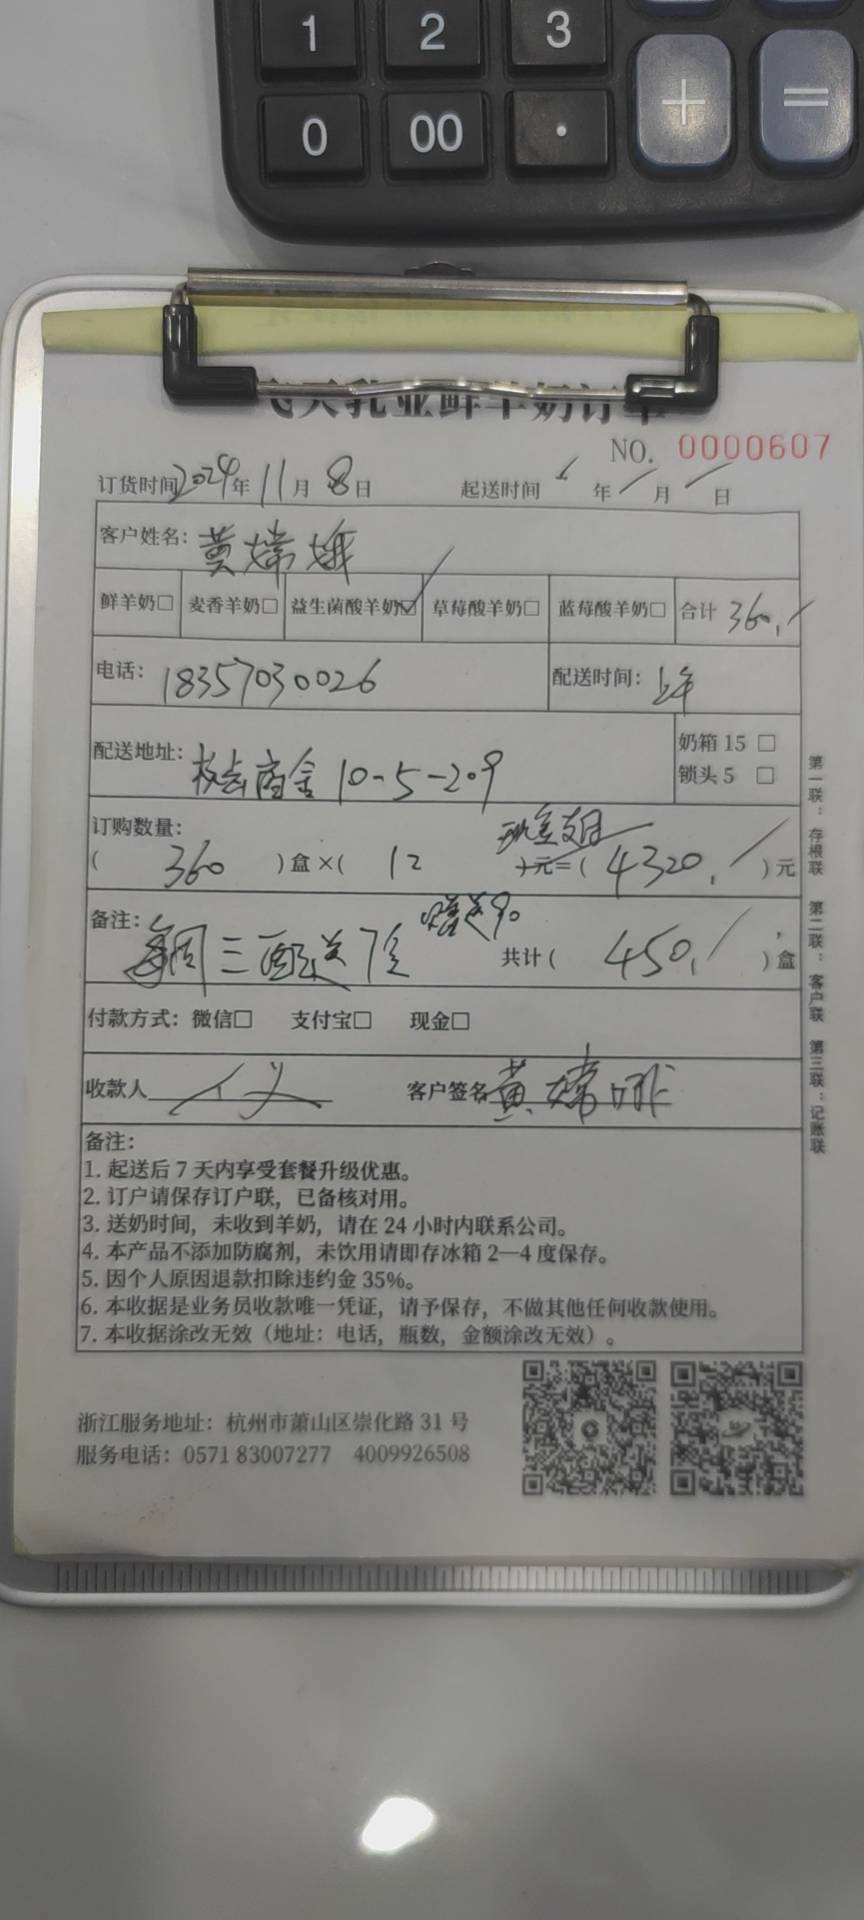 1 2 3
0 00 · + =
飞天乳业鲜羊奶订单
NO. 0000607
订货时间2024年11月8日 起送时间 年 月 日
客户姓名：黄嫦娥
鲜羊奶□ 麦香羊奶□ 益生菌酸羊奶☑ 草莓酸羊奶□ 蓝莓酸羊奶□ 合计 360
电话：18357030026 配送时间：上午
配送地址： 10-5-209 奶箱 15 □
锁头 5 □
订购数量：
( 360 ) 盒 ×( 12 )元=( 4320 ) 元
备注： 赠送90
每周三配送7盒 共计 ( 450 ) 盒
付款方式：微信□ 支付宝□ 现金□
收款人 客户签名 黄嫦娥
备注：
1. 起送后 7 天内享受套餐升级优惠。
2. 订户请保存订户联，已备核对用。
3. 送奶时间，未收到羊奶，请在 24 小时内联系公司。
4. 本产品不添加防腐剂，未饮用请即存冰箱 2—4 度保存。
5. 因个人原因退款扣除违约金 35%。
6. 本收据是业务员收款唯一凭证，请予保存，不做其他任何收款使用。
7. 本收据涂改无效（地址：电话，瓶数，金额涂改无效）。
第一联：存根联 第二联：客户联 第三联：记账联
浙江服务地址：杭州市萧山区崇化路 31 号
服务电话：0571 83007277 4009926508